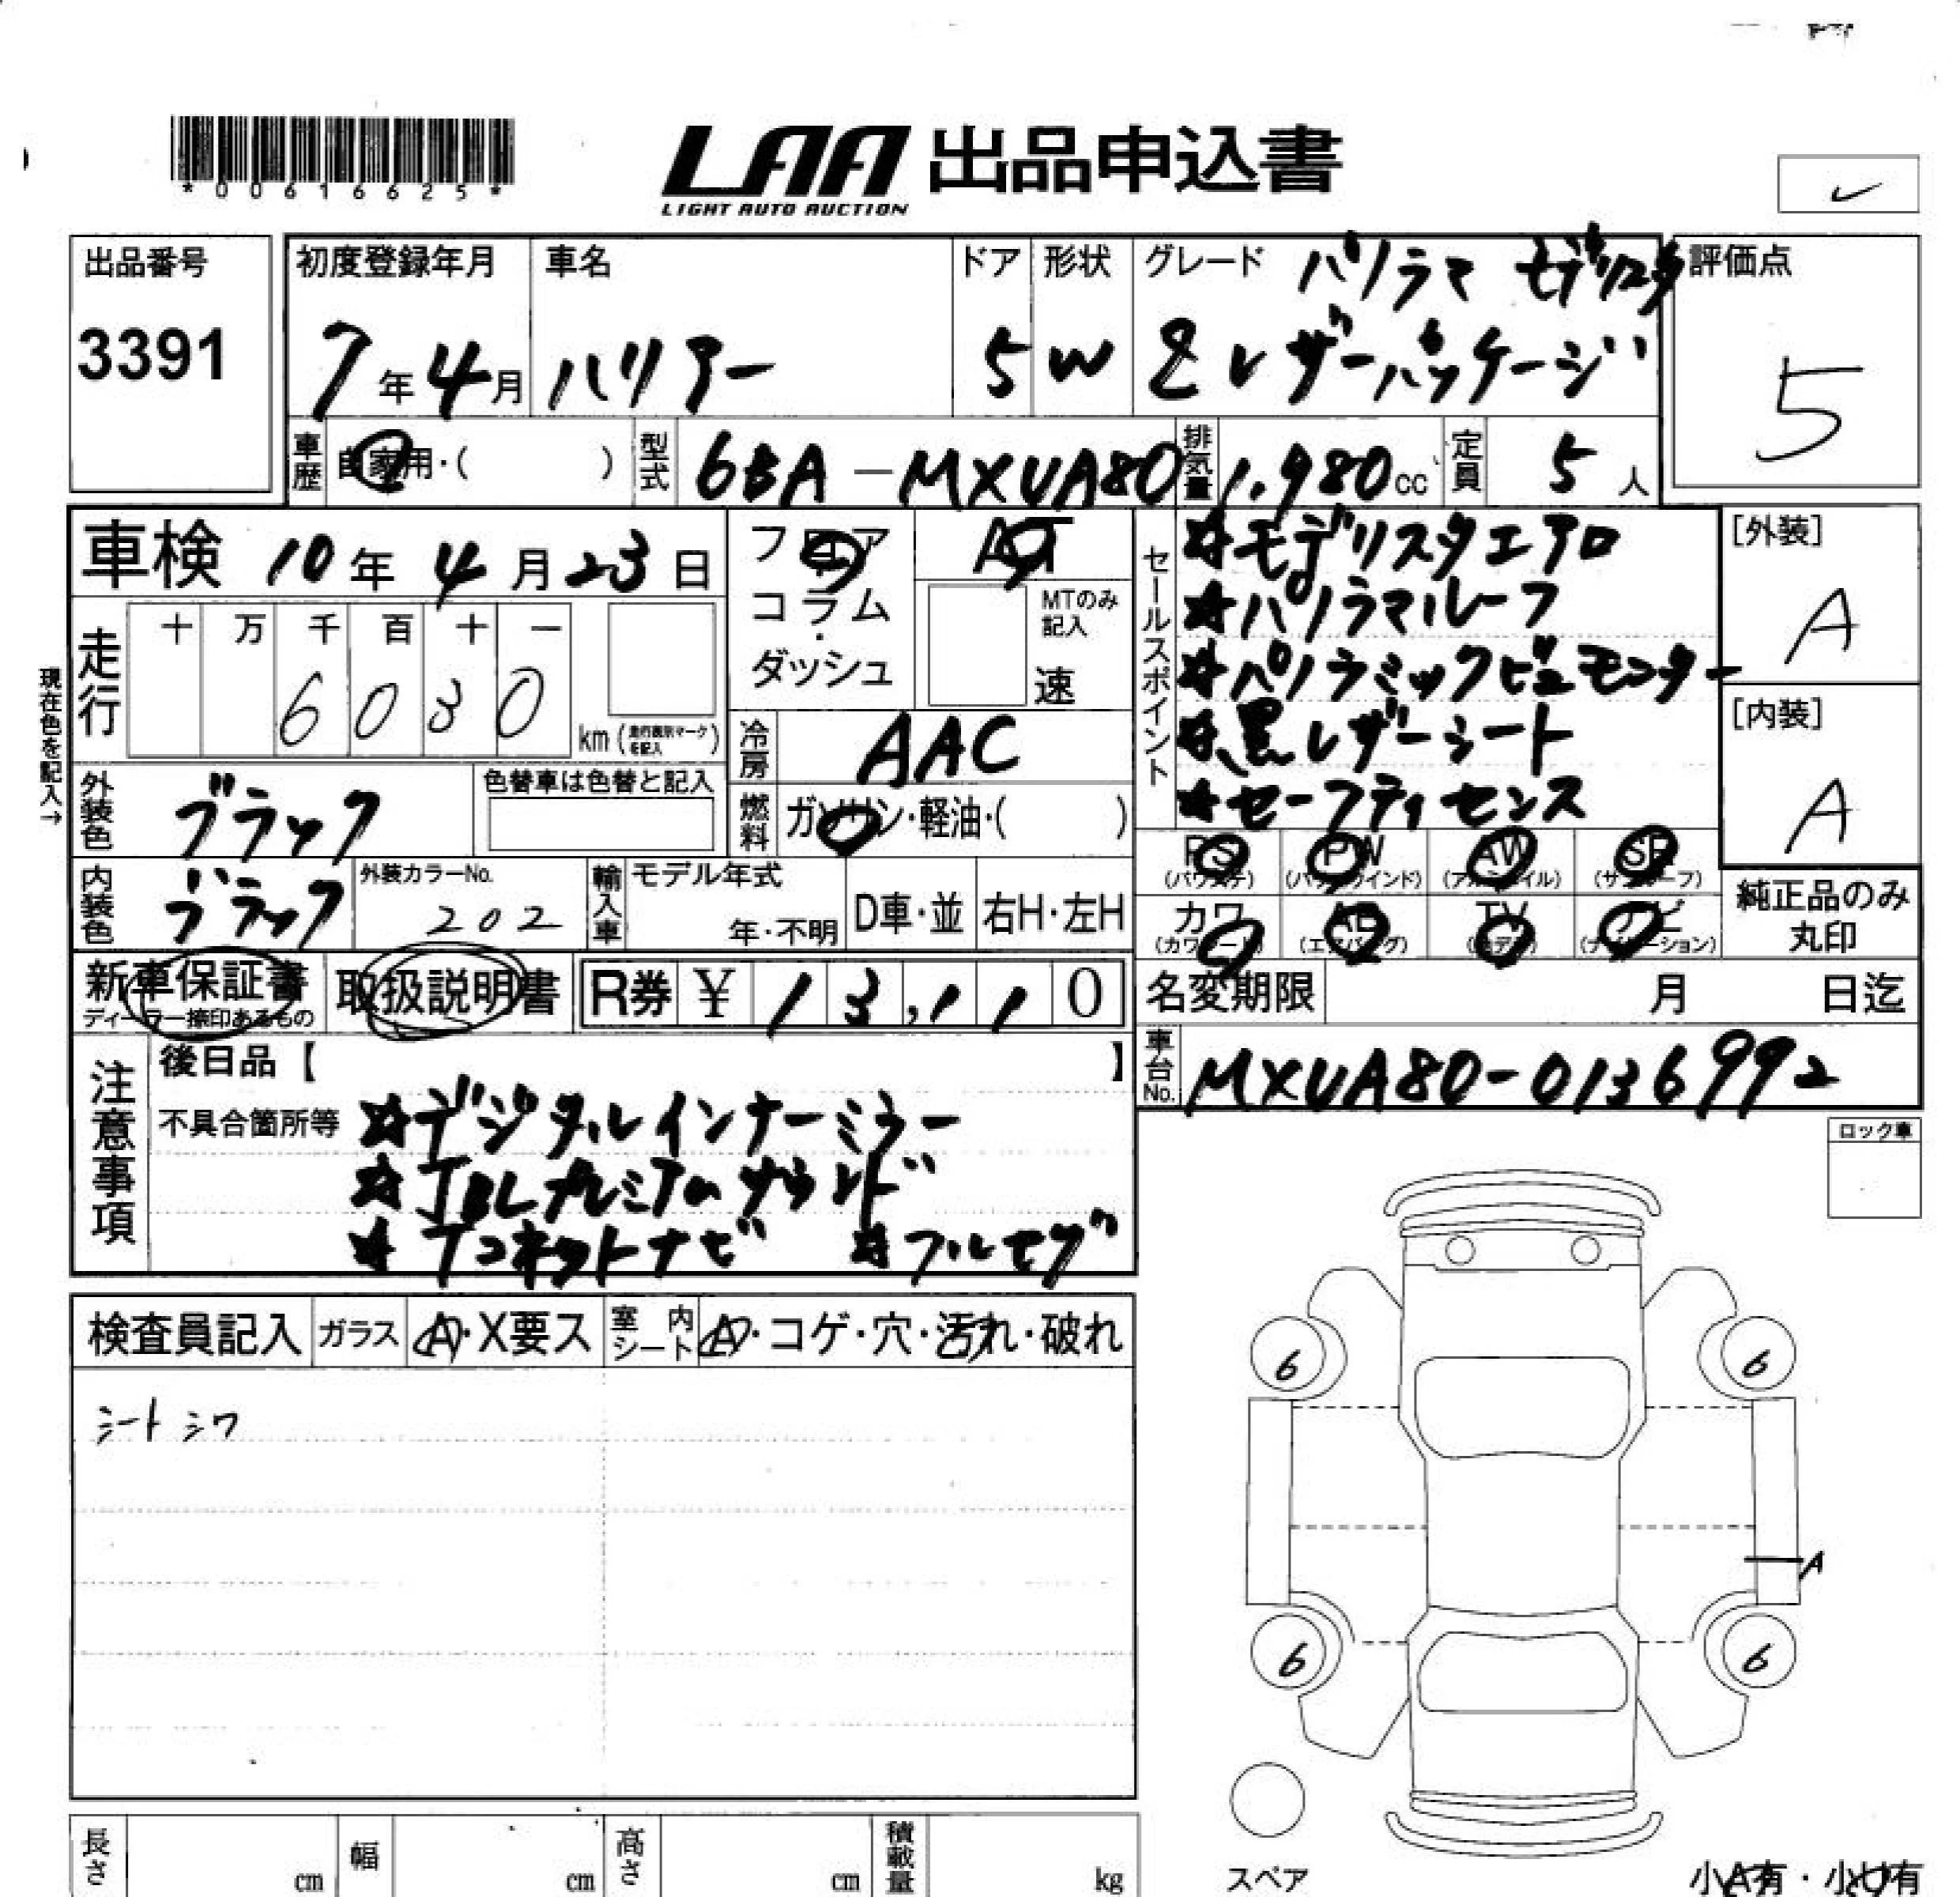 *00616625*
LAA 出品申込書
LIGHT AUTO AUCTION
出品番号
3391
初度登録年月
7年4月
車名
ハリアー
ドア
5
形状
W
グレード パノラマ モデリスタ
Zレザーパッケージ
評価点
5
車歴 自家用・( )
型式 6BA-MXUA80
排気量 1.980cc
定員 5人
車検 10年4月23日
フロア
コラム
・
ダッシュ
AT
MTのみ
記入
速
走行
十 万 千 百 十 一
6 0 3 0
km(走行表示マークを記入)
現在色を記入→
冷房 AAC
燃料 ガソリン・軽油・( )
外装色 ブラック
色替車は色替と記入
内装色 ブラック
外装カラーNo.
202
輸入車
モデル年式
年・不明
D車・並
右H・左H
セールスポイント
☆モデリスタエアロ
☆パノラマルーフ
☆パノラミックビューモニター
☆黒レザーシート
☆セーフティセンス
[外装]
A
[内装]
A
PS
(パワステ)
PW
(パワーウインド)
AW
(アルミホイル)
SR
(サンルーフ)
カワ
(カワシート)
AB
(エアバッグ)
TV
ナビ
(ナビゲーション)
純正品のみ
丸印
新車保証書
ディーラー捺印あるもの
取扱説明書
R券 ¥ 13,110
名変期限 月 日迄
車台No. MXUA80-0136992
注意事項
後日品【 】
不具合箇所等 ☆デジタルインナーミラー
☆JBLプレミアムサウンド
☆Tコネクトナビ ☆フルセグ
ロック車
検査員記入
ガラス A・X要ス
室内シート A・コゲ・穴・汚れ・破れ
シートシワ
6 6
A
6 6
スペア
小A有・小U有
長さ cm
幅 cm
高さ cm
積載量 kg